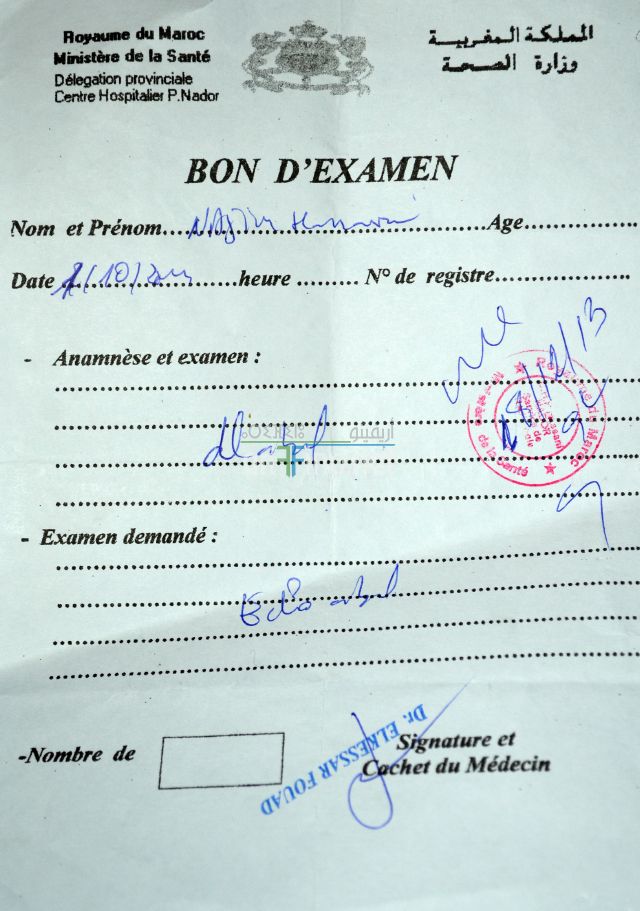 Royaume du Maroc
Ministère de la Santé
Délegation provinciale
Centre Hospitalier P.Nador
المملكة المغربية
وزارة الصحة
BON D'EXAMEN
Nom et Prénom Age
Date heure N° de registre
- Anamnèse et examen :
أريفينو
18/12/13
Royaume du Maroc
de la Santé
- Examen demandé :
Echo abd
-Nombre de
Dr. ELKESSAR FOUAD
Signature et
Cachet du Médecin